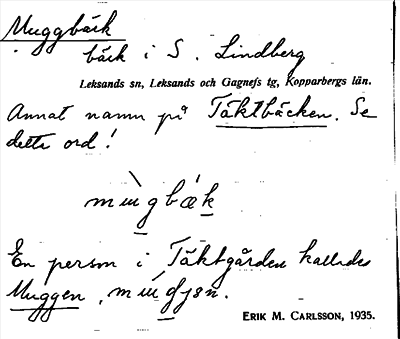 Muggbäck
bäck i S. Lindberg
Leksands sn, Leksands och Gagnefs tg, Kopparbergs län.
Annat namn på Täktbäcken. Se
detta ord!
mùgbæ̀k
En person i Täktgården kallades
Muggen,
ERIK M. CARLSSON, 1935.